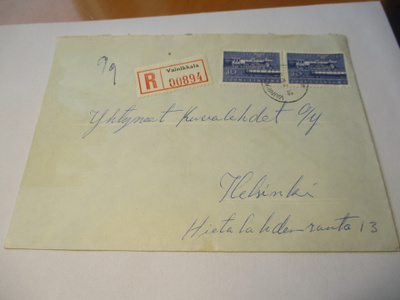 99
Vainikkala
R 00894
Yhtyneet Kuvalehdet O/Y
Helsinki
Hietalahdenranta 13